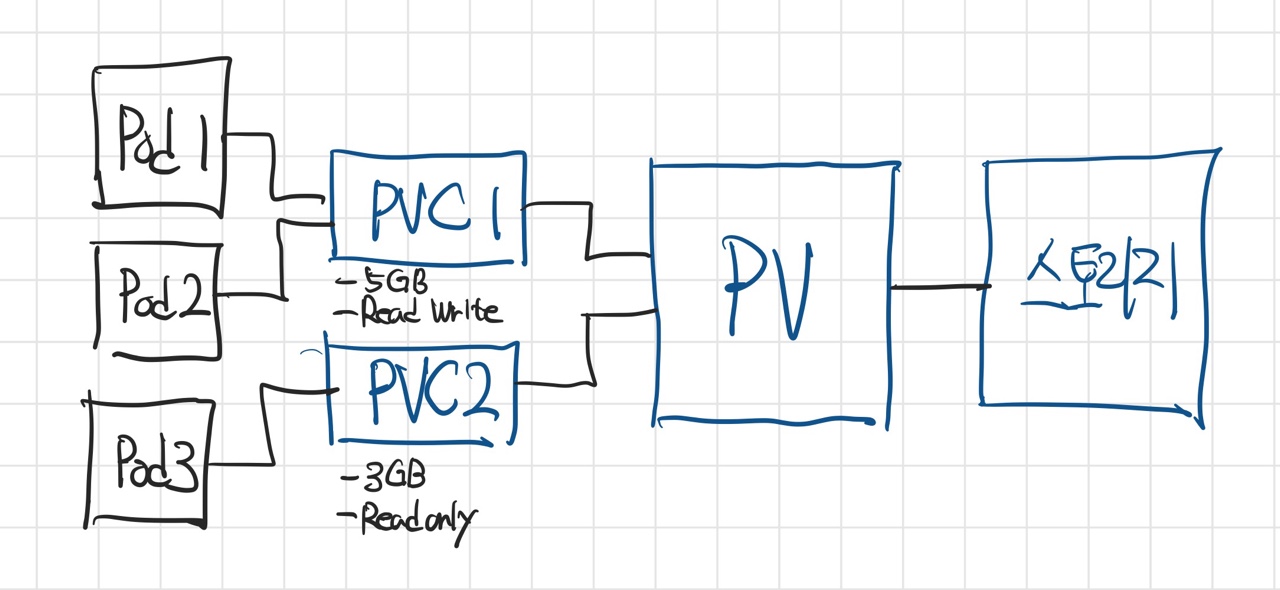 Pod 1
Pod2
Pod3
PVC 1
-5GB
-Read Write
PVC2
-3GB
-Read only
PV
스토리지